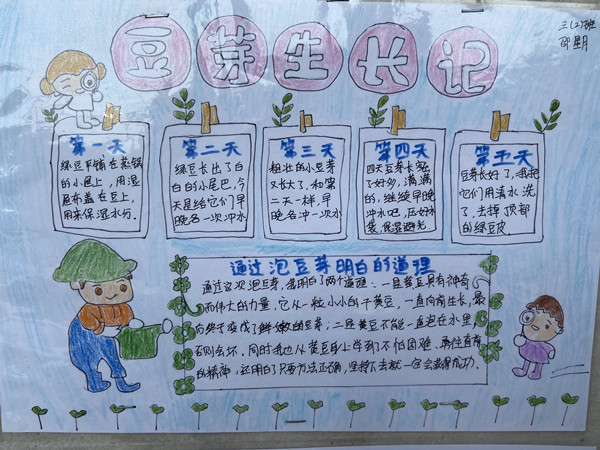 豆芽生长记
三(2)班
第一天
绿豆平铺在蒸锅
的小屉上，用湿
屉布盖在豆上，
用来保湿水份。
第二天
绿豆长出了白
白的小尾巴，今
天是给它们早
晚各一次冲水
第三天
粗壮的小豆芽
又长大了，和第
二天一样，早
晚各冲一次水
第四天
四天豆芽长高
了好多，满满
的，继续早晚
冲水吧，压好水
袋，保湿避光。
第五天
豆芽长好了，我把
它们用清水洗
了，去掉顶部
的绿豆皮
通过泡豆芽明白的道理
通过这次泡豆芽，我明白了两个道理：一是黄豆具有神奇
而伟大的力量，它从一粒小小的干黄豆，一直向前生长，最
后终于变成了鲜嫩的豆芽；二是黄豆不能一直泡在水里，
否则会坏。同时我也从黄豆身上学到了不怕困难、勇往直前
的精神，还明白了只要方法正确，坚持下去就一定会取得成功。